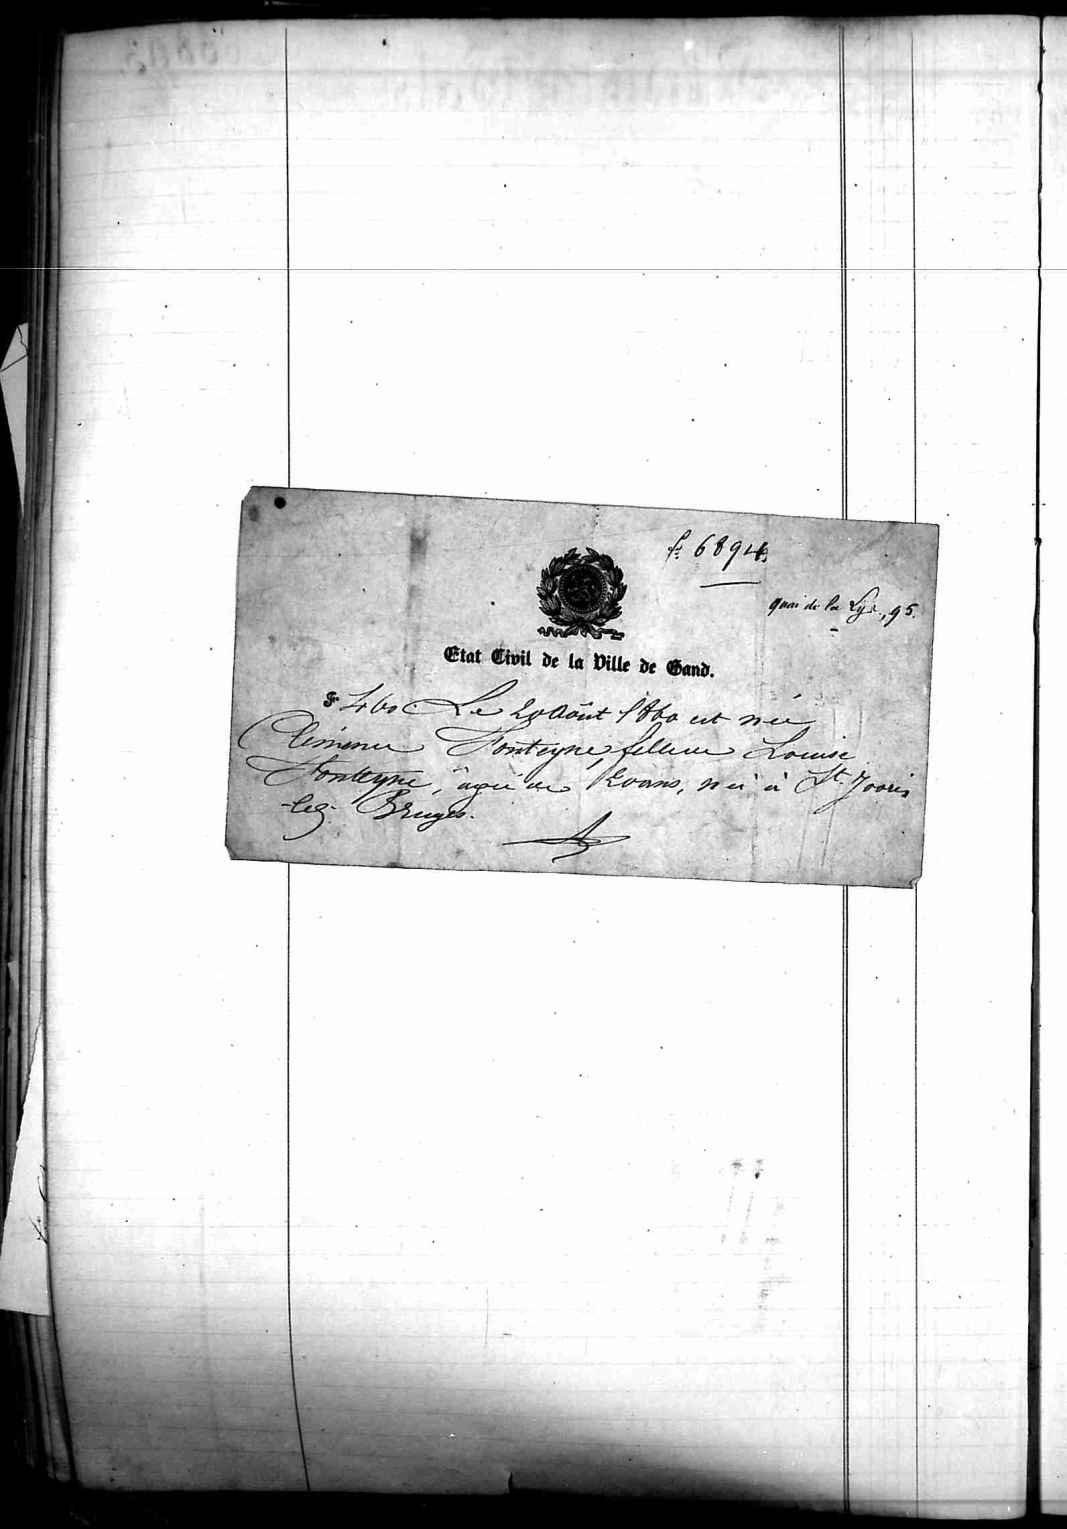 f: 6894
quai de la Lys, 95.
Etat Civil de la Ville de Gand.
Le 20 Août 1860 est née
Clémence Fonteyne, fille de Louise
Fonteyne, âgée de ans, née à St. Jooris
-lez- Bruges.